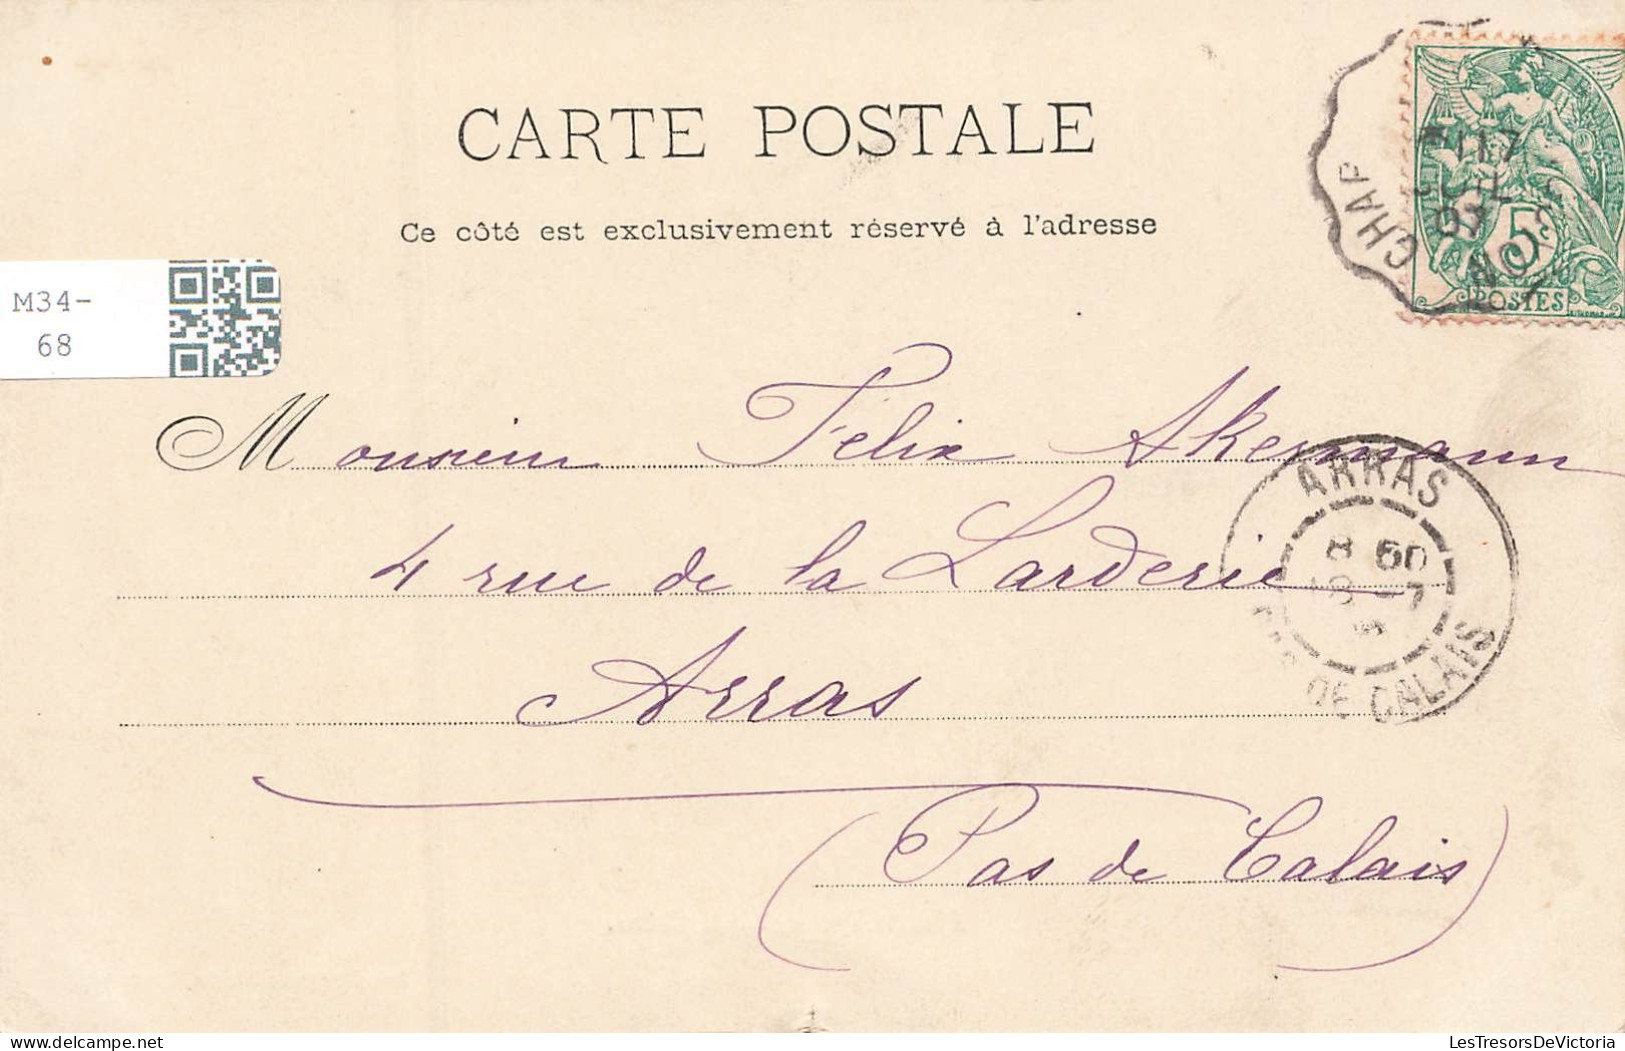 CARTE POSTALE
Ce côté est exclusivement réservé à l'adresse
M34-
68
CHAP
117
5
POSTES
Monsieur Félix Akermann
4 rue de la Larderie
Arras
(Pas de Calais)
ARRAS
DE CALAIS
LesTresorsDeVictoria